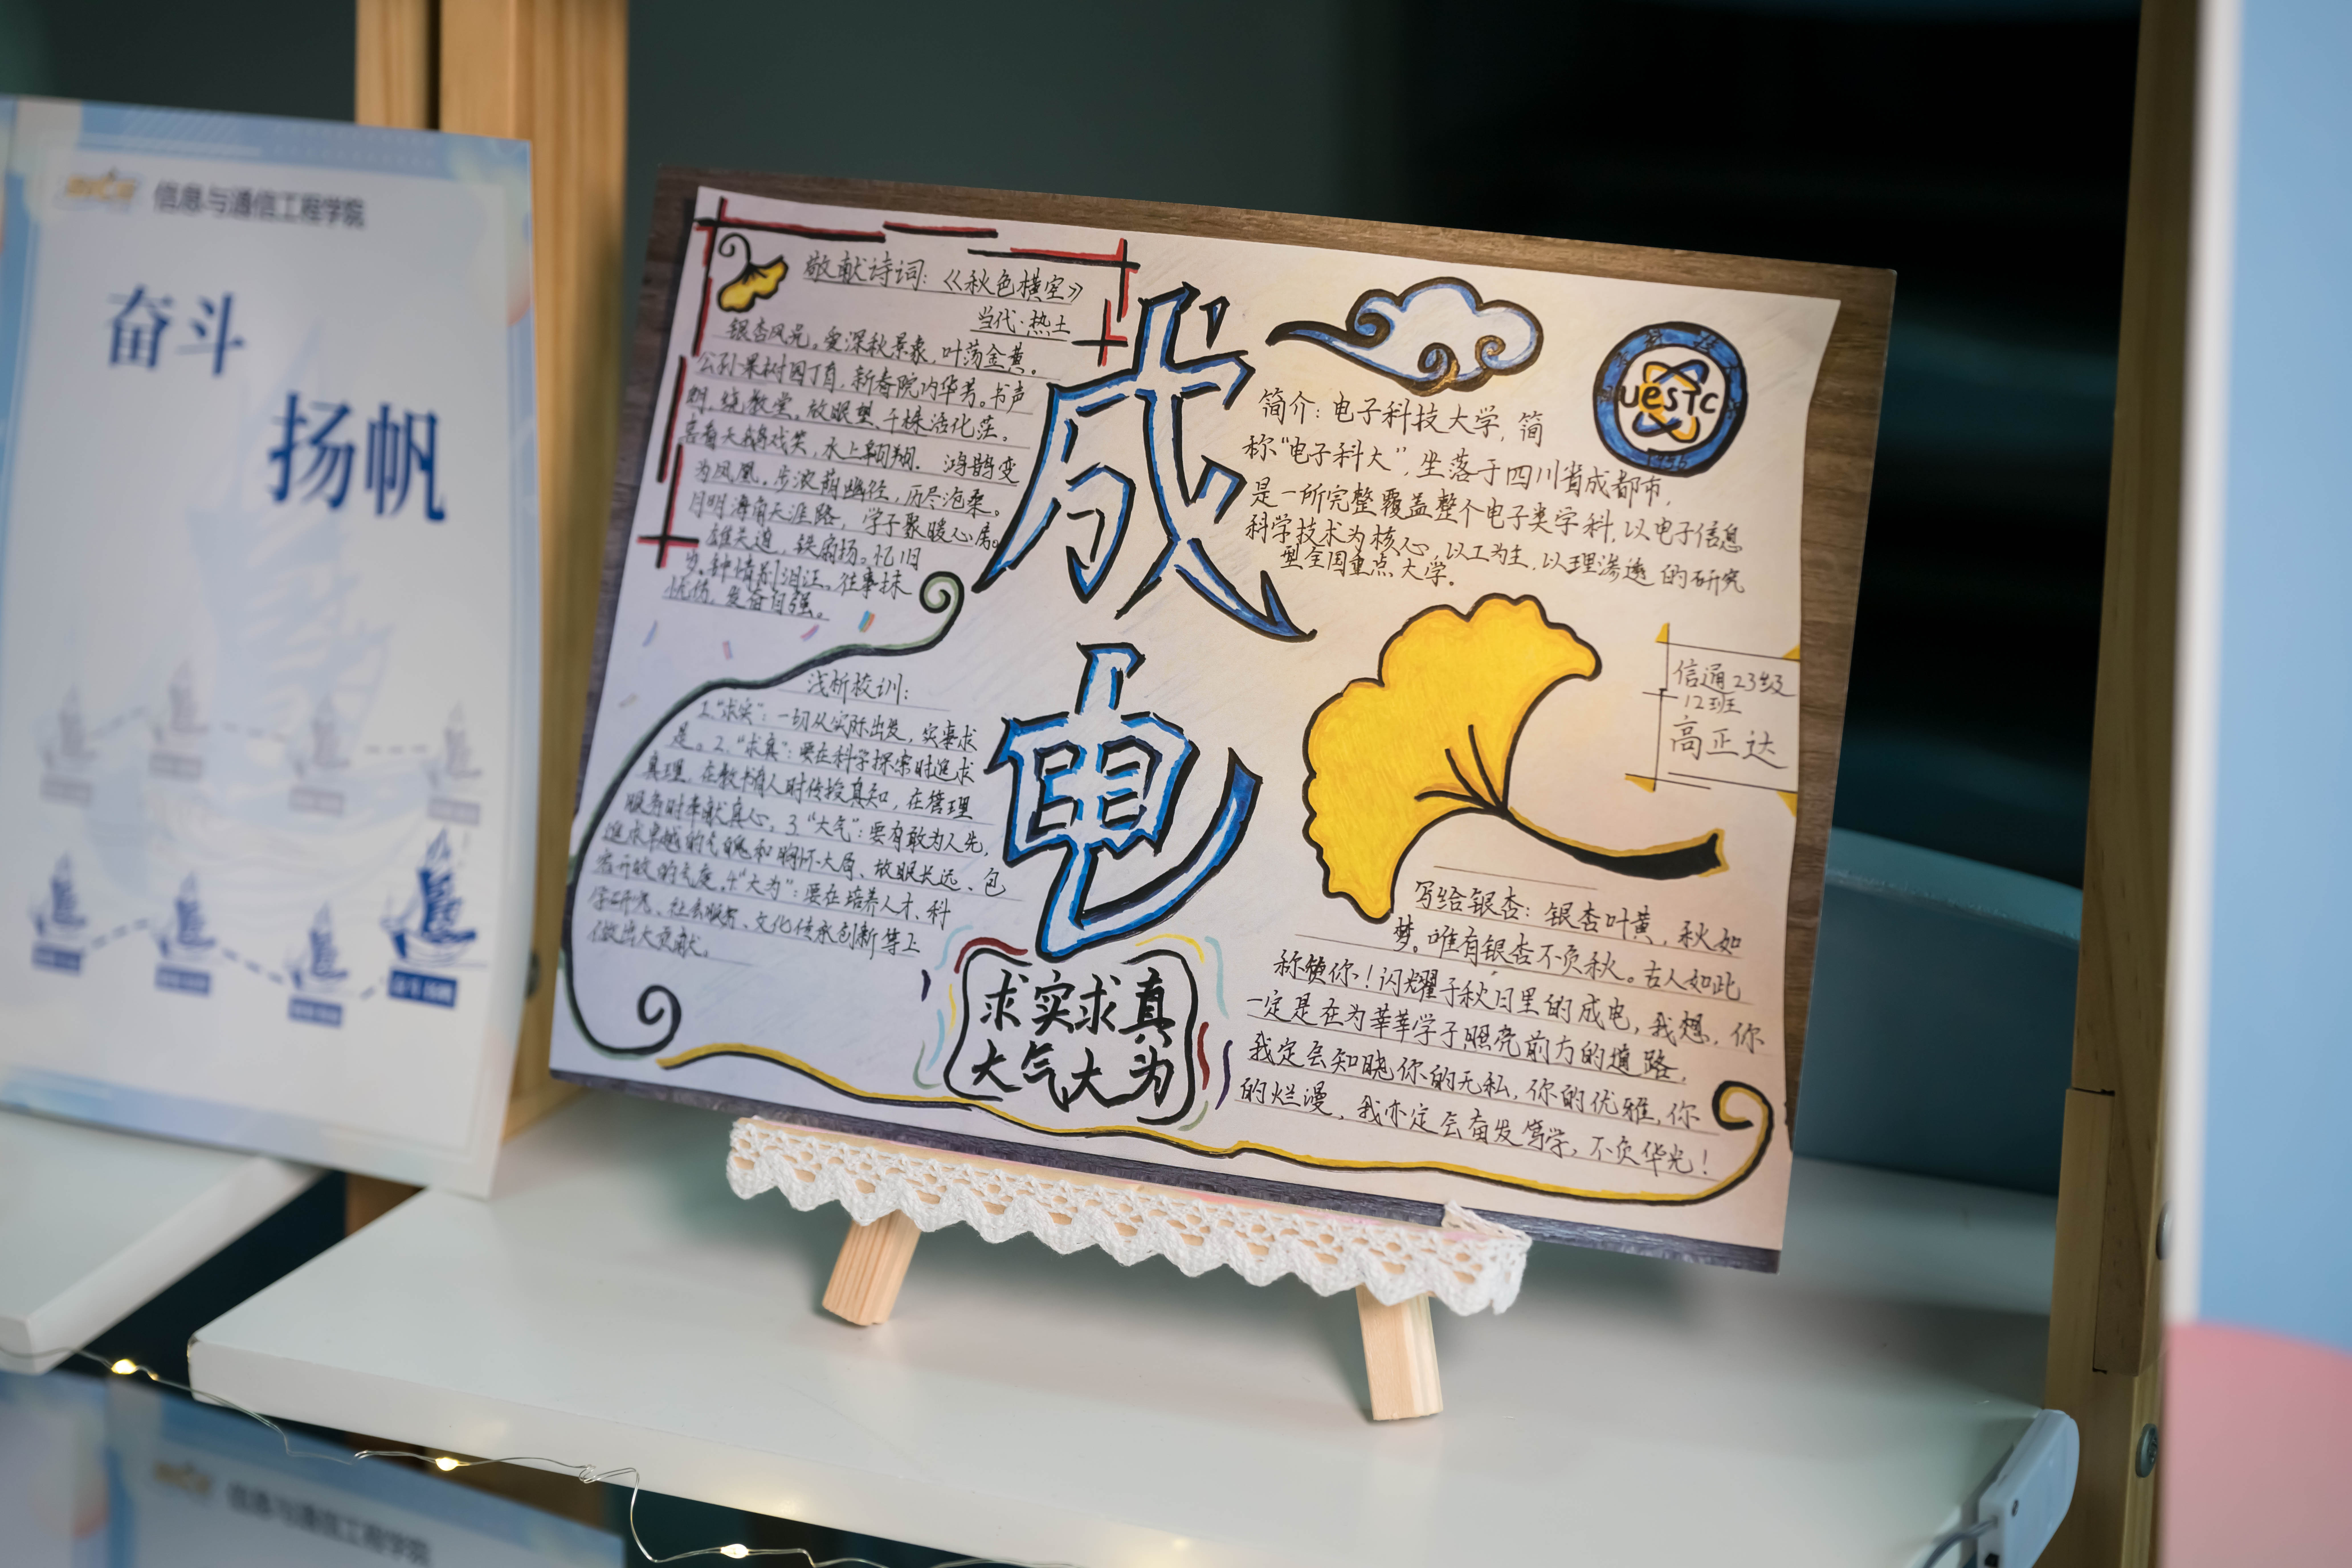 信息与通信工程学院
奋斗
扬帆
敬献诗词：《秋色横空》
当代·热土
银杏风光，爱深秋景象，叶荡金黄。
公孙果树园丁育，新春院内华芳。书声
朗，绕教堂。放眼望、千株活化茫。
喜看天鹅戏笑，水上翱翔。 鸿鹄变
为凤凰。步浓荫幽径，历尽沧桑。
月明海角天涯路，学子聚暖心房。
雄关道，铁扇扬。忆旧
岁、钟情别泪汪。往事抹
忧伤，发奋自强。
浅析校训：
1.“求实”：一切从实际出发，实事求
是。2.“求真”：要在科学探索时追求
真理，在教书育人时传授真知，在管理
服务时奉献真心。3.“大气”：要有敢为人先，
追求卓越的气魄和胸怀大局、放眼长远、包
容开放的气度。4.“大为”：要在培养人才、科
学研究、社会服务、文化传承创新等上
做出大贡献。
成
电
求实求真
大气大为
uesTc
1956
简介：电子科技大学，简
称“电子科大”，坐落于四川省成都市，
是一所完整覆盖整个电子类学科，以电子信息
科学技术为核心，以工为主，以理渗透的研究
型全国重点大学.
信通23级
12班
高正达
写给银杏：银杏叶黄，秋如
梦。唯有银杏不负秋。古人如此
称颂你！闪耀于秋日里的成电，我想，你
一定是在为莘莘学子照亮前方的道路，
我定会知晓你的无私，你的优雅，你
的烂漫，我亦定会奋发笃学，不负华光！
信息与通信工程学院